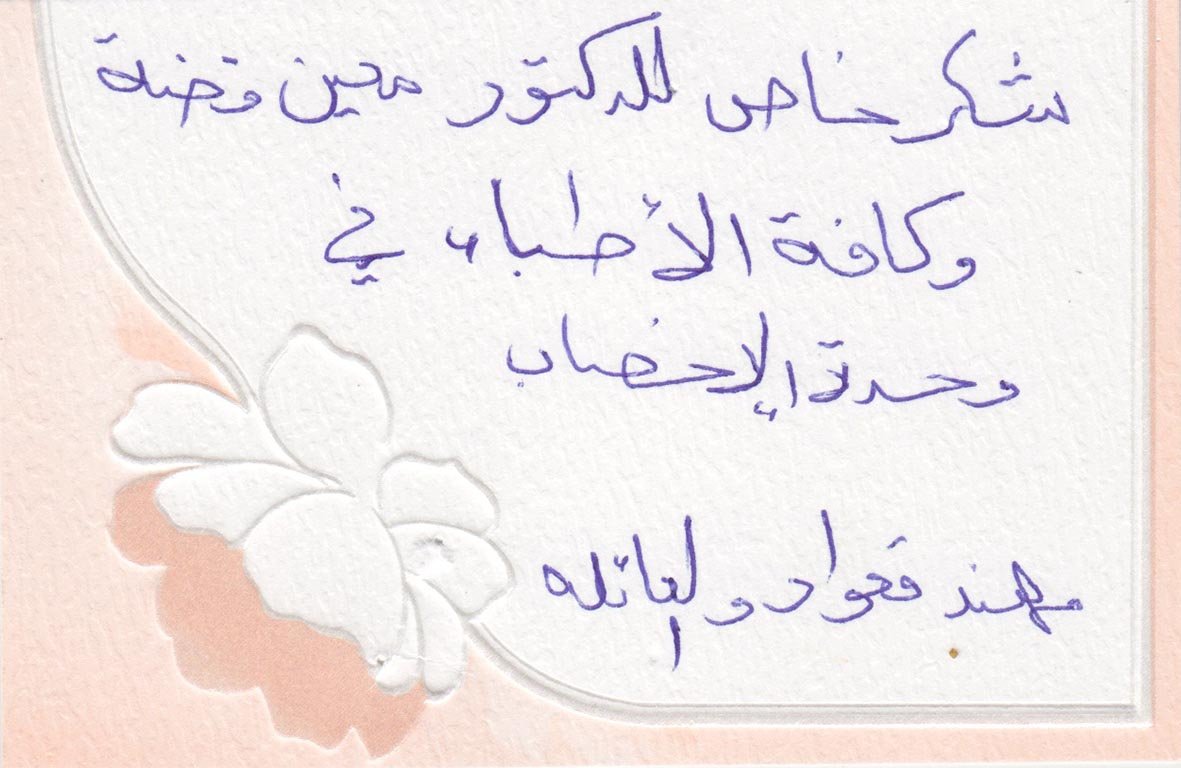 شكر خاص للدكتور معين فضة
وكافة الأطباء في
وحدة الإخصاب
مهند قعوار والعائلة